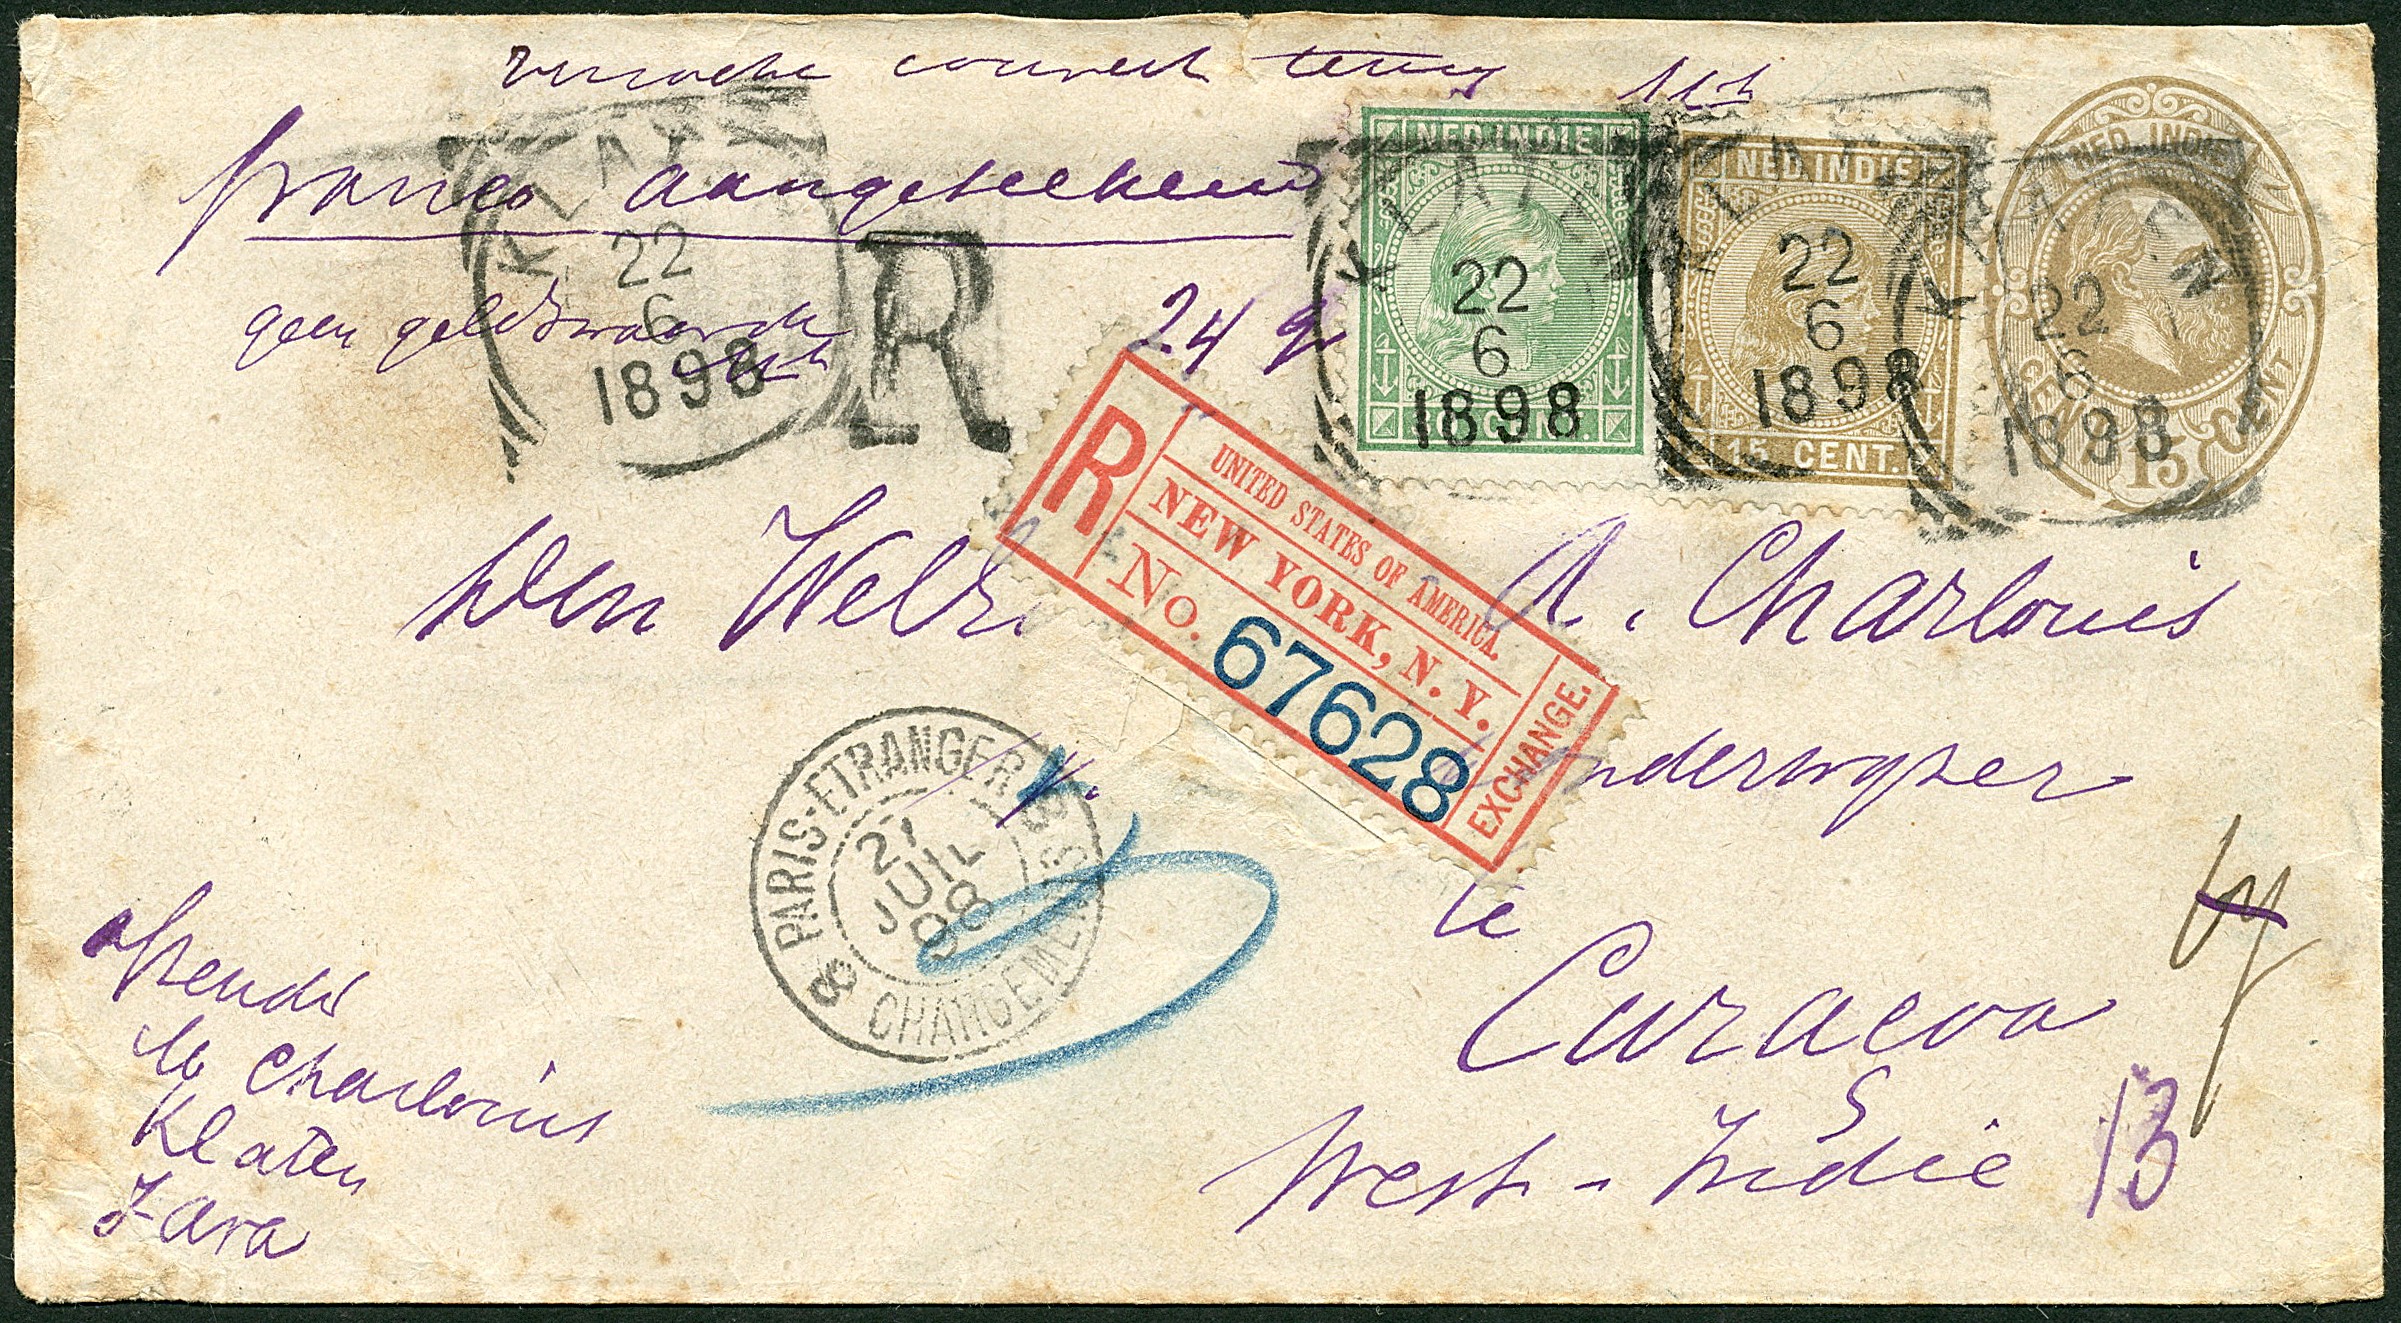 verzoeke couvert terug
franco aangeteekend
geen geldswaarde
24 g
R
KLATEN
22
6
1898
NED. INDIE
KLATEN
22
6
1898
50 CENT.
NED. INDIE
KLATEN
22
6
1898
15 CENT.
NED. INDIE
KLATEN
22
6
1898
15
CENT CENT
R
UNITED STATES OF AMERICA.
NEW YORK, N. Y.
No. 67628
EXCHANGE.
Den Weled. A. Charlouis
PARIS-ETRANGER
27
JUIL
98
CHANGEMENTS
8
Onderwyzer
te
Curacoa
West-Indië
13
afzender
Charlouis
Klaten
Java